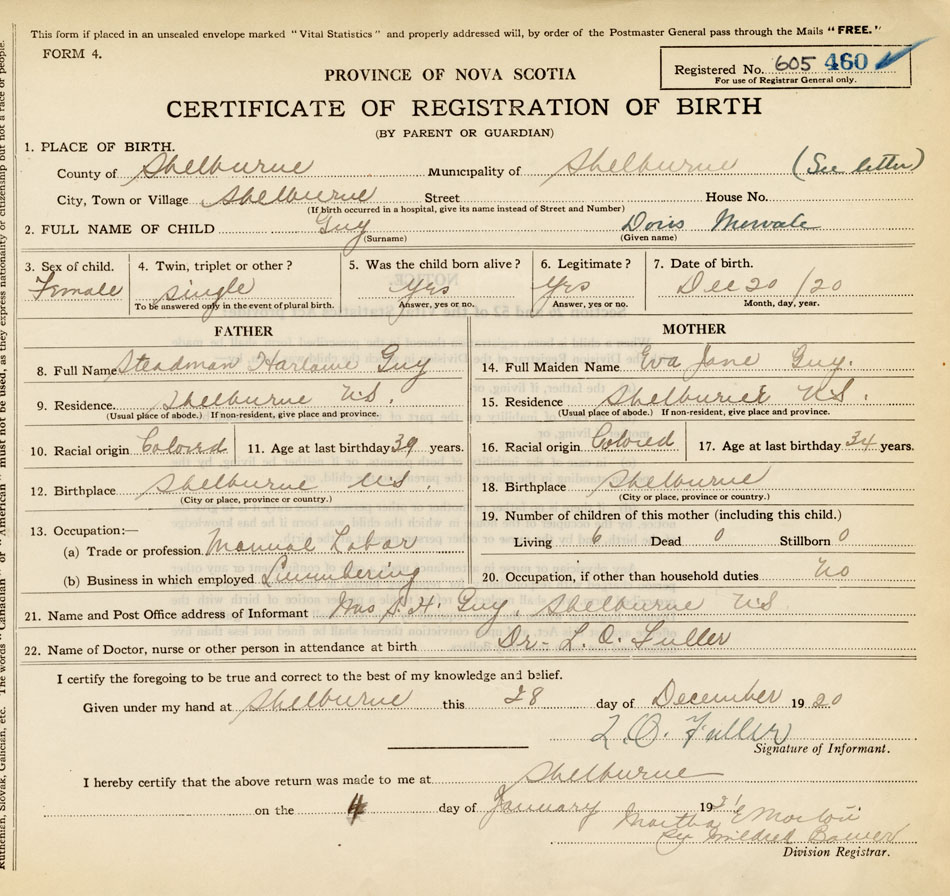 This form if placed in an unsealed envelope marked "Vital Statistics" and properly addressed will, by order of the Postmaster General pass through the Mails "FREE."
FORM 4.
Registered No. 605 460
For use of Registrar General only.
PROVINCE OF NOVA SCOTIA
CERTIFICATE OF REGISTRATION OF BIRTH
(BY PARENT OR GUARDIAN)
1. PLACE OF BIRTH.
County of Shelburne Municipality of Shelburne (See letter)
City, Town or Village Shelburne Street House No.
(If birth occurred in a hospital, give its name instead of Street and Number)
2. FULL NAME OF CHILD Guy Doris
(Surname) (Given name)
3. Sex of child. 4. Twin, triplet or other? 5. Was the child born alive? 6. Legitimate? 7. Date of birth.
Female single Yes Yes Dec 20/20
To be answered only in the event of plural birth. Answer, yes or no. Answer, yes or no. Month, day, year.
FATHER
8. Full Name Steadman Guy
9. Residence. Shelburne N.S.
(Usual place of abode.) If non-resident, give place and province.
10. Racial origin Colored 11. Age at last birthday 39 years.
12. Birthplace Shelburne N.S.
(City or place, province or country.)
13. Occupation:—
(a) Trade or profession. Manual Labor
(b) Business in which employed Lumbering
MOTHER
14. Full Maiden Name Eva Jane Guy.
15. Residence Shelburne N.S.
(Usual place of abode.) If non-resident, give place and province.
16. Racial origin Colored 17. Age at last birthday 34 years.
18. Birthplace Shelburne
(City or place, province or country.)
19. Number of children of this mother (including this child.)
Living 6 Dead 0 Stillborn 0
20. Occupation, if other than household duties No
21. Name and Post Office address of Informant Mrs S. H. Guy, Shelburne N.S
22. Name of Doctor, nurse or other person in attendance at birth Dr. L. O. Fuller
I certify the foregoing to be true and correct to the best of my knowledge and belief.
Given under my hand at Shelburne this 28 day of December 1920
L. O. Fuller
Signature of Informant.
I hereby certify that the above return was made to me at Shelburne
on the 4 day of January 1921
Martha E Morton
Per Mildred Bower
Division Registrar.
Ruthenian, Slovak, Galician, etc. The words "Canadian" or "American" must not be used, as they express nationality or citizenship but not a race or people.